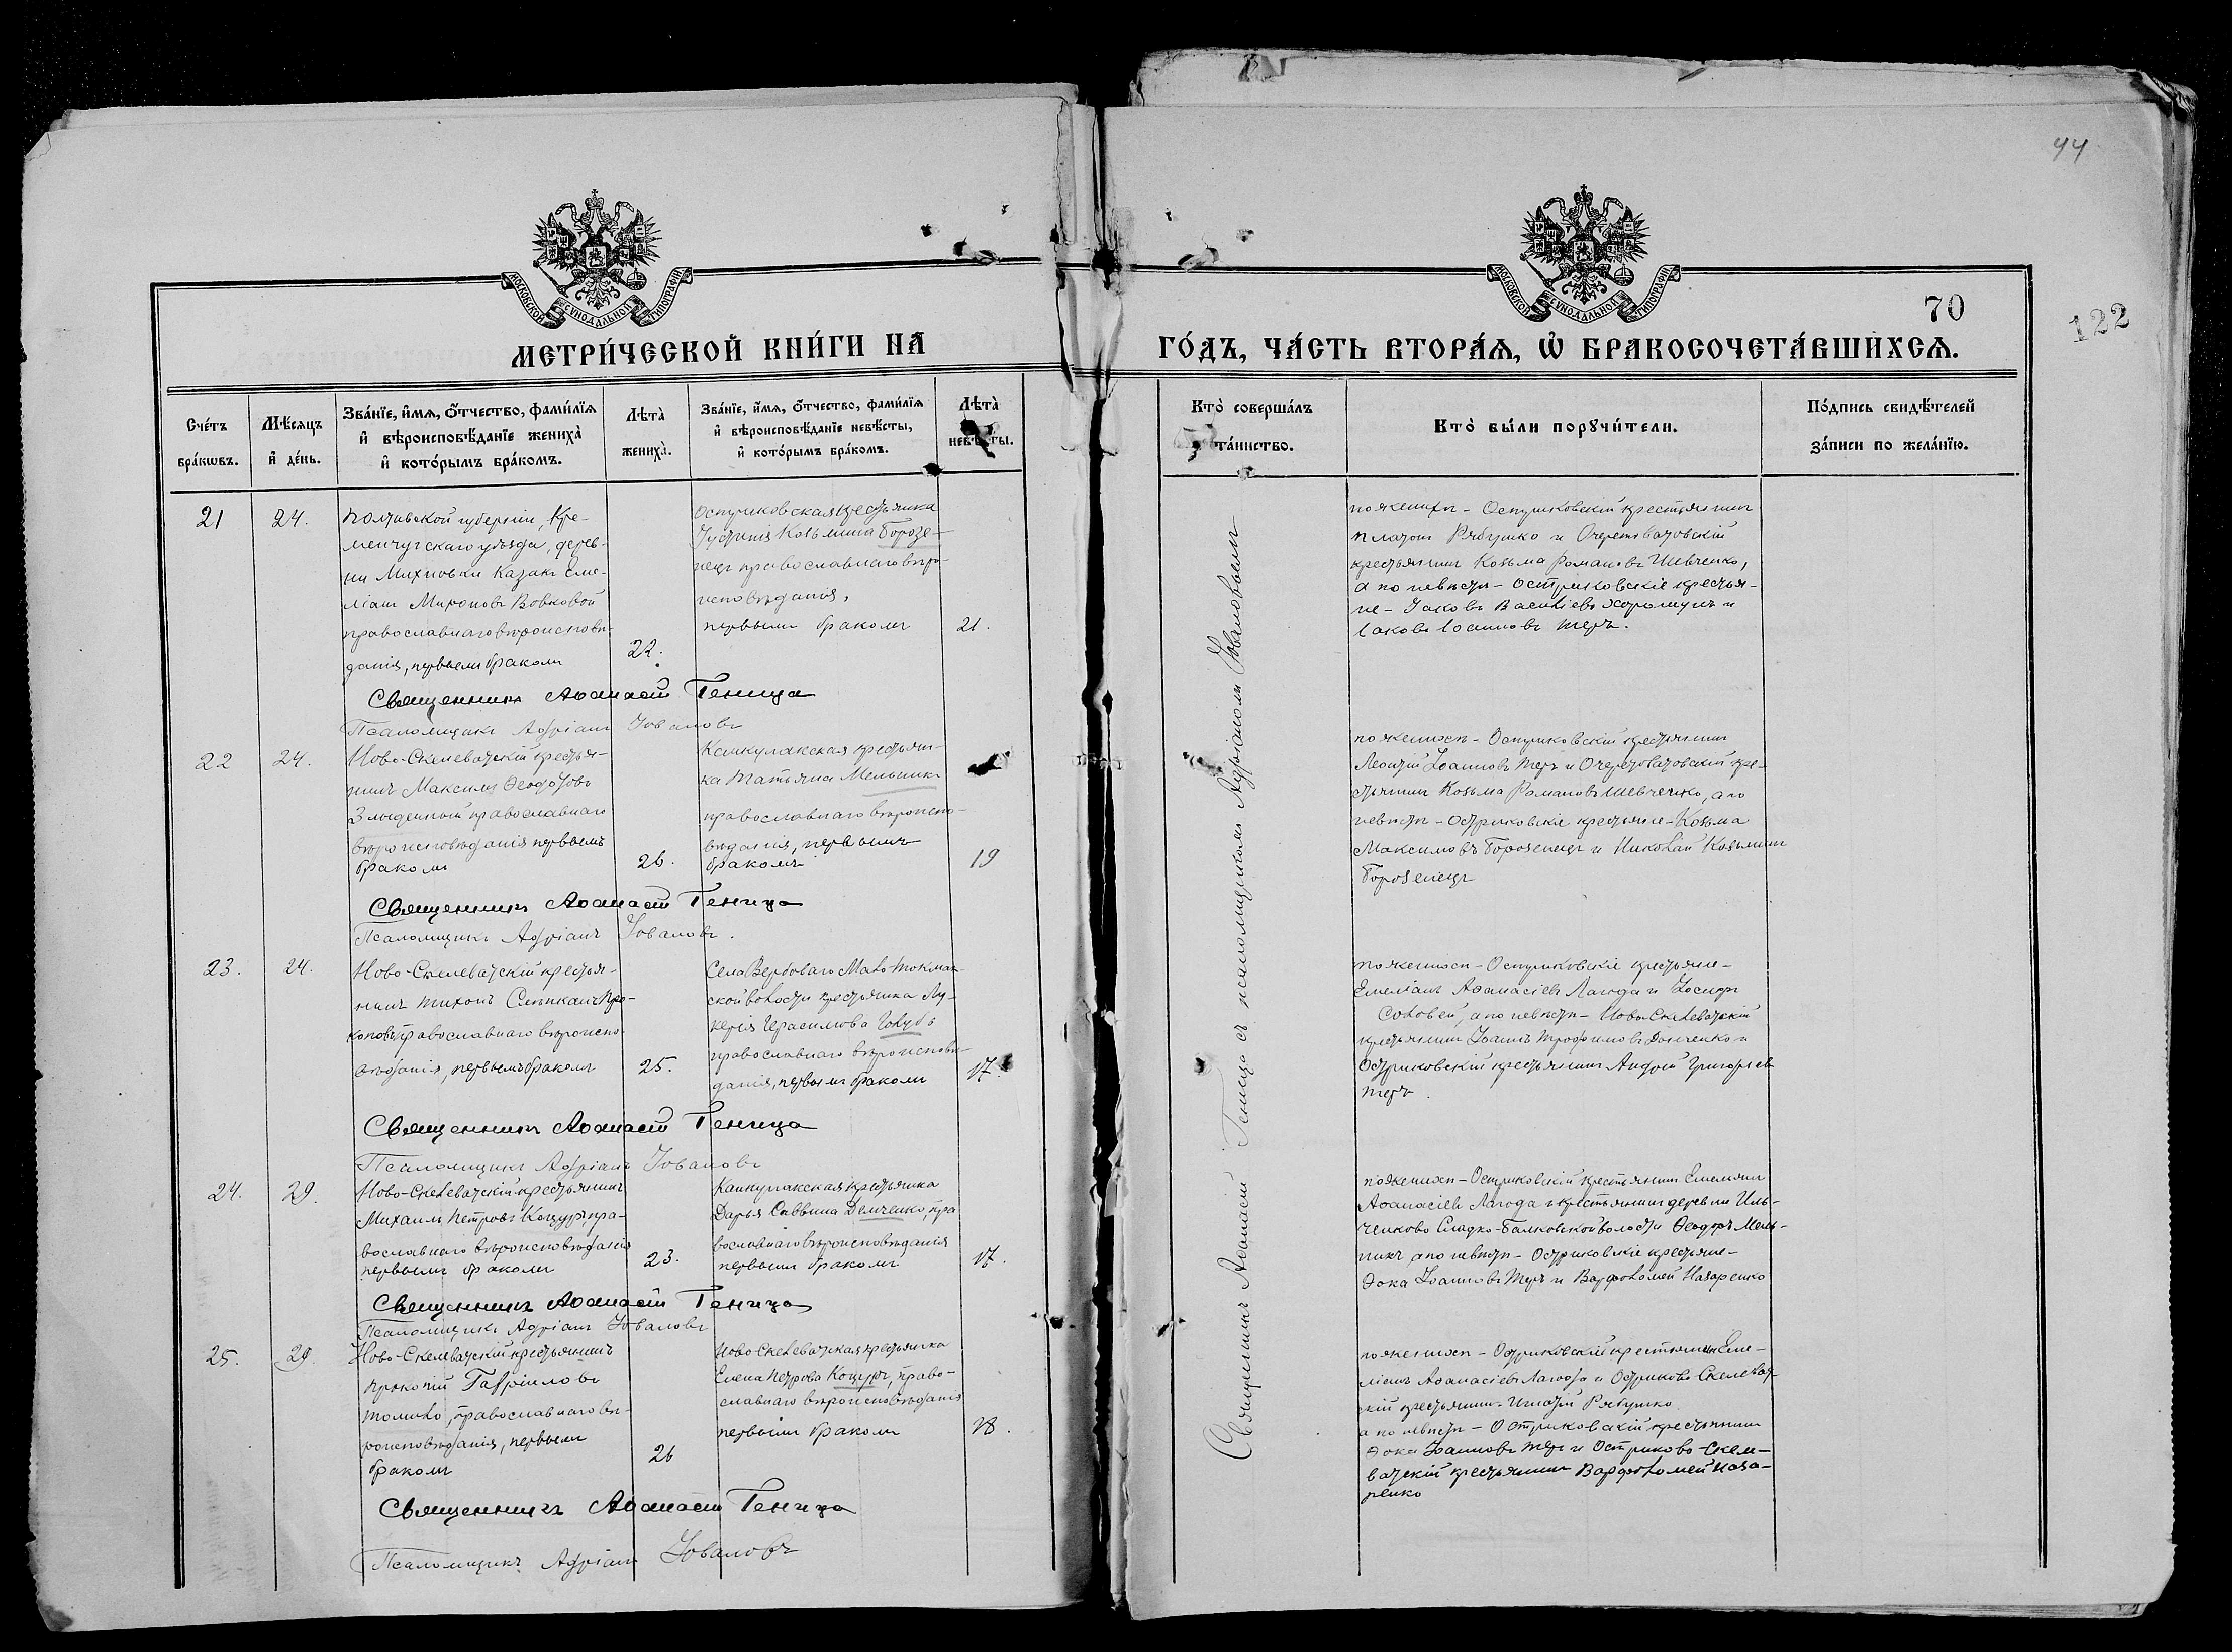 44
70
122
МОСКОВСКОЙ СУНОДАЛЬНОЙ ТИПОГРАФІИ
МОСКОВСКОЙ СУНОДАЛЬНОЙ ТИПОГРАФІИ
МЕТРИ́ЧЕСКОЙ КНИ́ГИ НА
ГО́ДЪ, ЧА́СТЬ ВТОРА́Ѧ, Ѡ БРАКОСОЧЕТА́ВШИХСѦ.
Сче́тъ бра́кѡвъ.
Мѣ́сяцъ и҆ де́нь.
Зва́нїе, и҆́мѧ, ѻ҆́тчество, фами́лїѧ
и҆ вѣроисповѣ́данїе жениха̀
и҆ кото́рымъ бра́комъ.
Лѣта̀ жениха̀.
Зва́нїе, и҆́мѧ, ѻ҆́тчество, фами́лїѧ
и҆ вѣроисповѣ́данїе невѣ́сты,
и҆ кото́рымъ бра́комъ.
Лѣта̀ невѣ́сты.
Кто̀ соверша́лъ та́инство.
Кто̀ бы́ли порꙋчи́тели.
По́дпись свидѣ́телей за́писи по жела́нїю.
21
24.
Полтавской губерніи, Кре-
менчугскаго уѣзда, дерев-
ни Михновки Казакъ Еме-
ліанъ Мироновъ Вовковой
православнаго вѣроисповѣ-
данія, первымъ бракомъ
22.
Остриковская крестьянка
Іустинія Козьмина Борозе-
нецъ православнаго вѣро-
исповѣданія,
первымъ бракомъ
21.
по женихѣ - Остриковскій крестьянинъ
Платонъ Рябушко и Очеретоватовскій
крестьянинъ Козьма Романовъ Шевченко,
а по невѣстѣ - Остриковскіе крестья-
не - Іаковъ Василіевъ и
Іаковъ Іоанновъ Теръ.
Священникъ Аѳанасій Геница
Псаломщикъ Адріанъ Іоваловъ
22
24.
Ново-Скелеватскій крестья-
нинъ Максимъ Ѳеодотовъ
православнаго
вѣроисповѣданія первымъ
бракомъ
26.
крестьян-
ка Татьяна Мельникъ
православнаго вѣроиспо-
вѣданія, первымъ
бракомъ
19
по женихѣ - Остриковскій крестьянинъ
Леонтій Іоанновъ Теръ и Очеретоватовскій кре-
стьянинъ Козьма Романовъ Шевченко, а по
невѣстѣ - Остриковскіе крестьяне - Козьма
Максимовъ Борозенецъ и Николай Козьминъ
Борозенецъ
Священникъ Аѳанасій Геница
Псаломщикъ Адріанъ Іоваловъ.
23.
24.
Ново-Скелеватскій крестья-
нинъ Тихонъ Слипканъ Про-
коповъ православнаго вѣроиспо-
вѣданія, первымъ бракомъ
25.
Села Вербоваго Мало-Токмак-
ской волости крестьянка Лу-
керія Герасимова Голубъ
православнаго вѣроисповѣ-
данія, первымъ бракомъ
17.
по женихѣ - Остриковскіе крестьяне -
Емеліанъ Аѳанасіевъ Лагода и Іосифъ
Соловей, а по невѣстѣ - Ново-Скелеватскій
крестьянинъ Іоаннъ Трофимовъ Донченко и
Остриковскій крестьянинъ Андрей Григорьевъ
Теръ.
Священникъ Аѳанасій Геница
Псаломщикъ Адріанъ Іоваловъ
24.
29.
Ново-Скелеватскій крестьянинъ
Михаилъ Петровъ Коцуръ, пра-
вославнаго вѣроисповѣданія
первымъ бракомъ
23.
Канкулакская крестьянка
Дарья Саввина Демченко, пра-
вославнаго вѣроисповѣданія
первымъ бракомъ
17.
по женихѣ - Остриковскій крестьянинъ Емеліанъ
Аѳанасіевъ Лагода и крестьянинъ деревни Иль-
ченково Сладко-Балковской волости Ѳеодоръ Мель-
никъ а по невѣстѣ - Остриковскіе крестьяне -
Ѳока Іоанновъ Теръ и Варфоломей Назаренко
Священникъ Аѳанасій Геница
Псаломщикъ Адріанъ Іоваловъ
25.
29.
Ново-Скелеватскій крестьянинъ
Прокопій Гавріиловъ
Томило, православнаго вѣ-
роисповѣданія, первымъ
бракомъ
26
Ново-Скелеватская крестьянка
Елена Петрова Коцуръ, право-
славнаго вѣроисповѣданія
первымъ бракомъ
18.
по женихѣ - Остриковскій крестьянинъ Еме-
ліанъ Аѳанасіевъ Лагода и Остриково-Скелеват-
скій крестьянинъ Игнатій Рябушко
а по невѣстѣ - Остриковскій крестьянинъ
Ѳока Іоанновъ Теръ и Остриково-Скеле-
ватскій крестьянинъ Варфоломей Наза-
ренко
Священникъ Аѳанасій Геница
Псаломщикъ Адріанъ Іоваловъ
Священникъ Аѳанасій Геница съ псаломщикомъ Адріаномъ Іоваловымъ